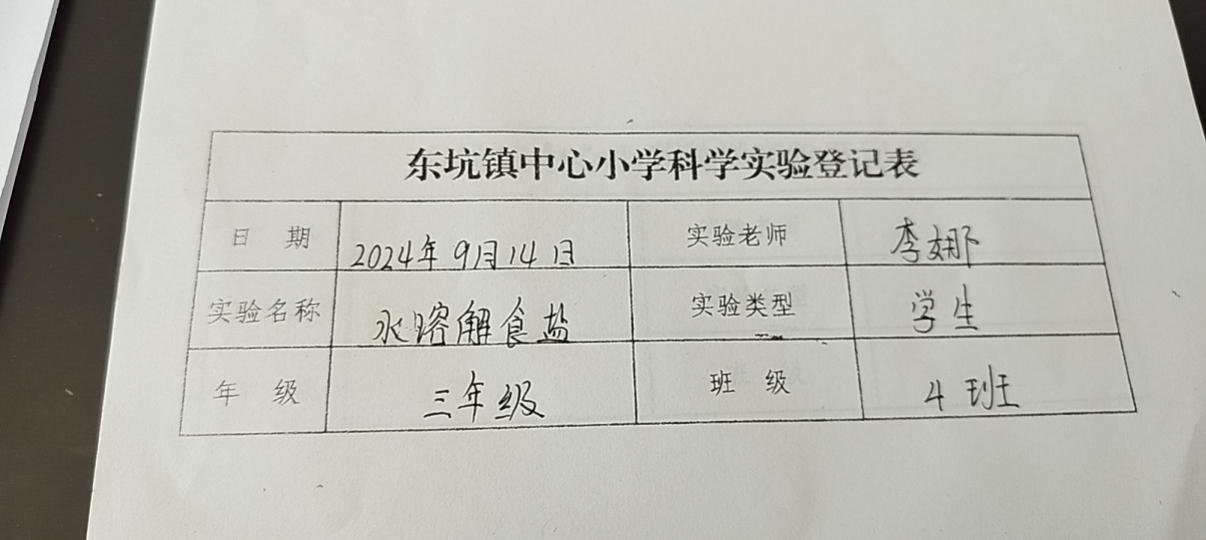 东坑镇中心小学科学实验登记表
日 期 2024年9月14日 实验老师 李娜
实验名称 水溶解食盐 实验类型 学生
年 级 三年级 班 级 4班